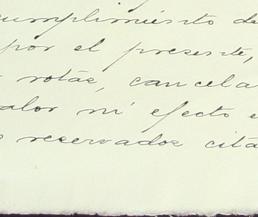 cumplimiento de
por el presente,
rotas, cancela
alor ni efecto e
s reservados cita